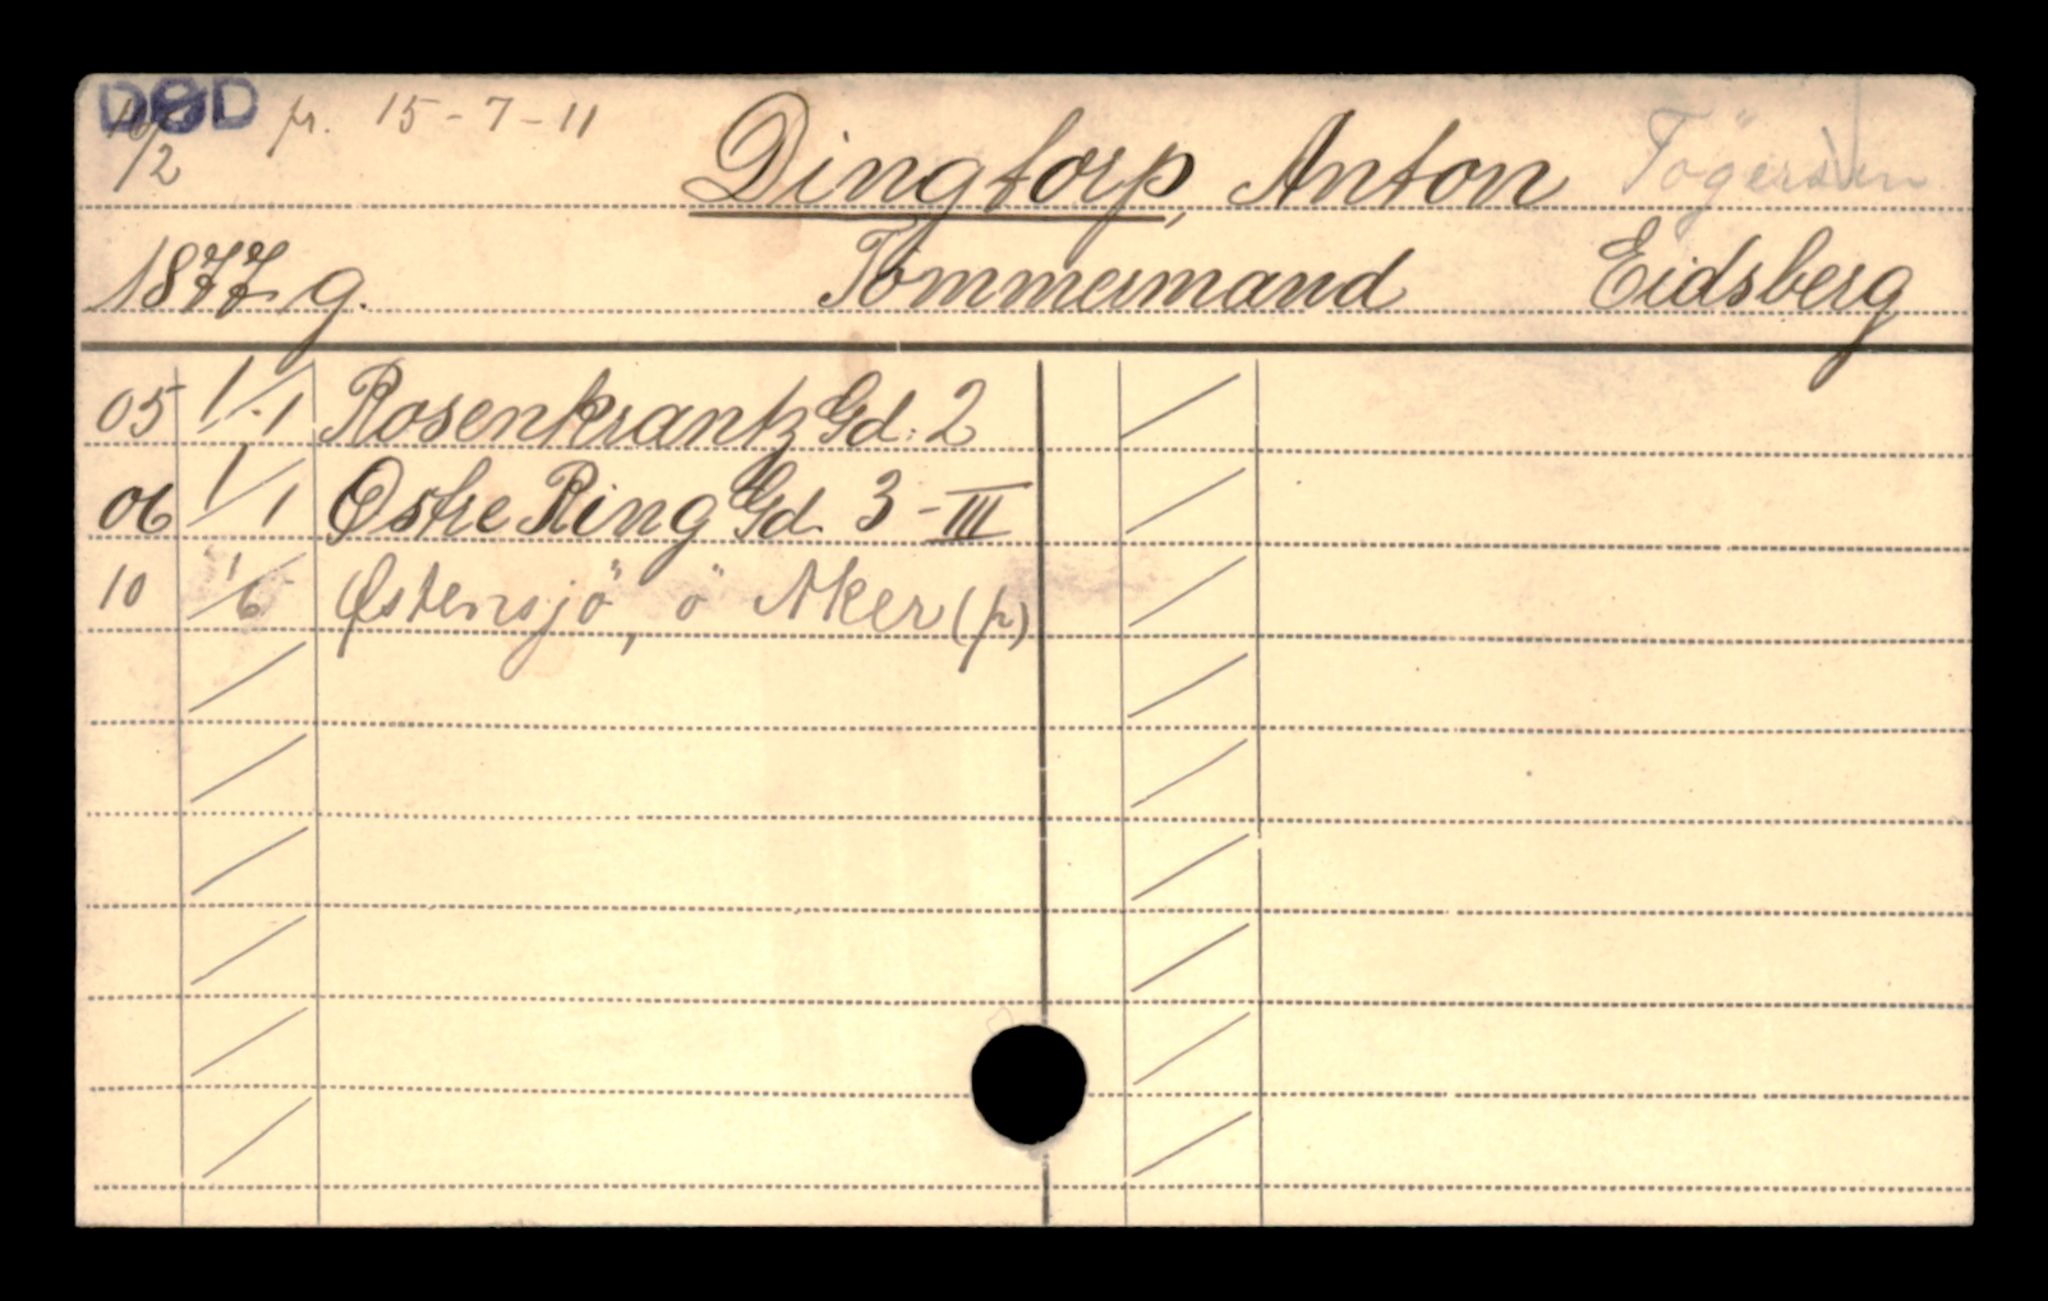 DØD fr. 15-7-11
/2
Dingtorp, Anton
1877 g. Tömmermand Eidsberg
05 1/1 Rosenkrantz Gd. 2
06 1/1 Østre Ring Gd. 3-III
10 1/6 Østensjö, ö Aker (fr)